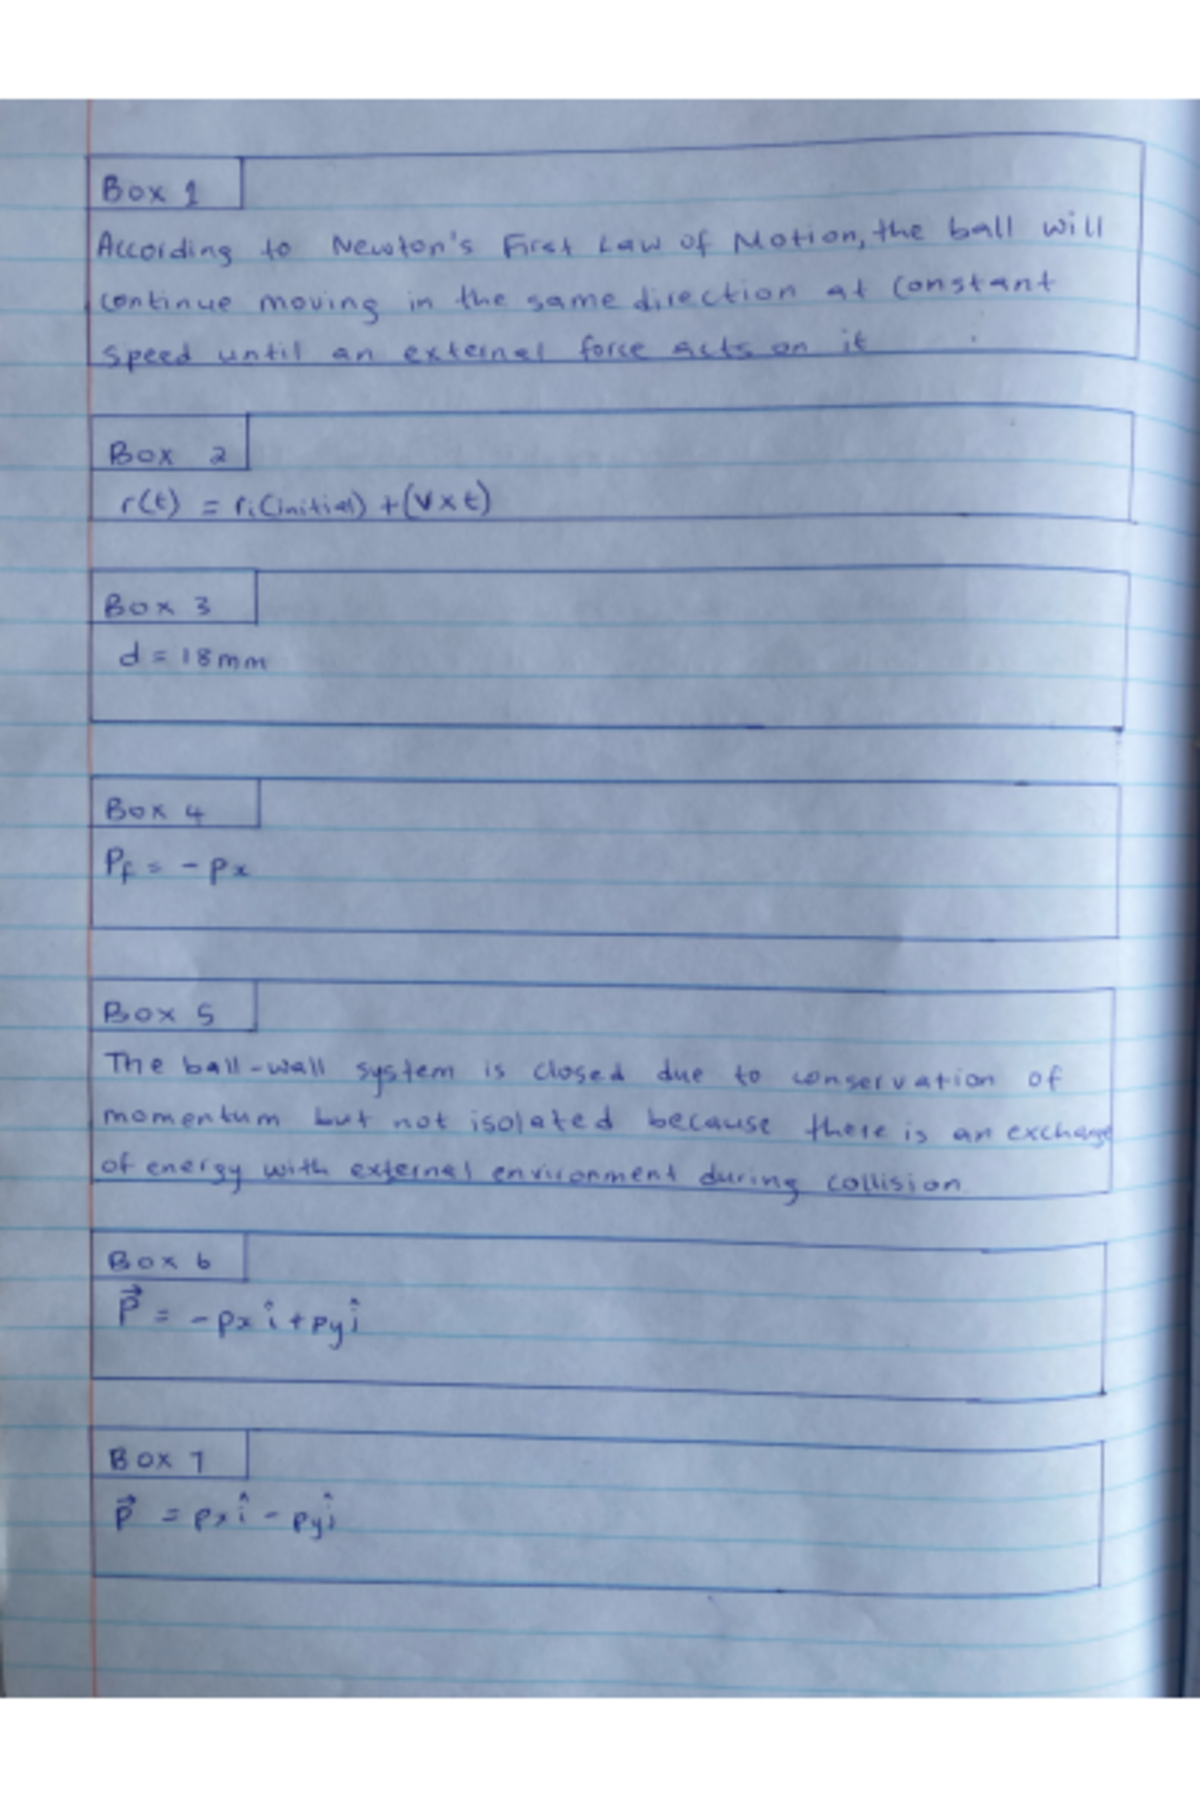 Box 1
According to Newton's First Law of Motion, the ball will
continue moving in the same direction at constant
speed until an external force acts on it
Box 2
r(t) = ri(initial) + (V x t)
Box 3
d = 18mm
Box 4
Pf = - px
Box 5
The ball-wall system is closed due to conservation of
momentum but not isolated because there is an exchange
of energy with external environment during collision
Box 6
P⃗ = - px î + py ĵ
Box 7
p⃗ = px î - py ĵ